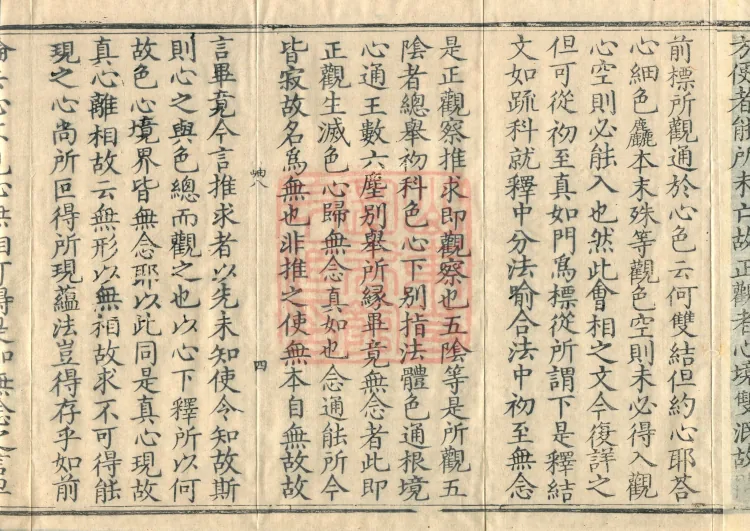 方便者能所未亡故正觀者心境雙泯故
前標所觀通於心色云何雙結但約心耶荅
心細色麤本末殊等觀色空則未必得入觀
心空則必能入也然此會相之文今復詳之
但可從初至真如門爲標從所謂下是釋結
文如䟽科就釋中分法喻合法中初至無念
是正觀察推求即觀察也五陰等是所觀五
陰者總舉初科色心下別指法體色通根境
心通王數六塵別舉所緣畢竟無念者此即
正觀生滅色心歸無念真如也念通能所今
皆寂故名爲無也非推之使無本自無故故
岫八
四
言畢竟今言推求者以先未知使令知故斯
則心之與色總而觀之也以心下釋所以何
故色心境界皆無念耶以此同是真心現故
真心離相故云無形以無相故求不可得能
現之心尚所叵得所現蘊法豈得存乎如前